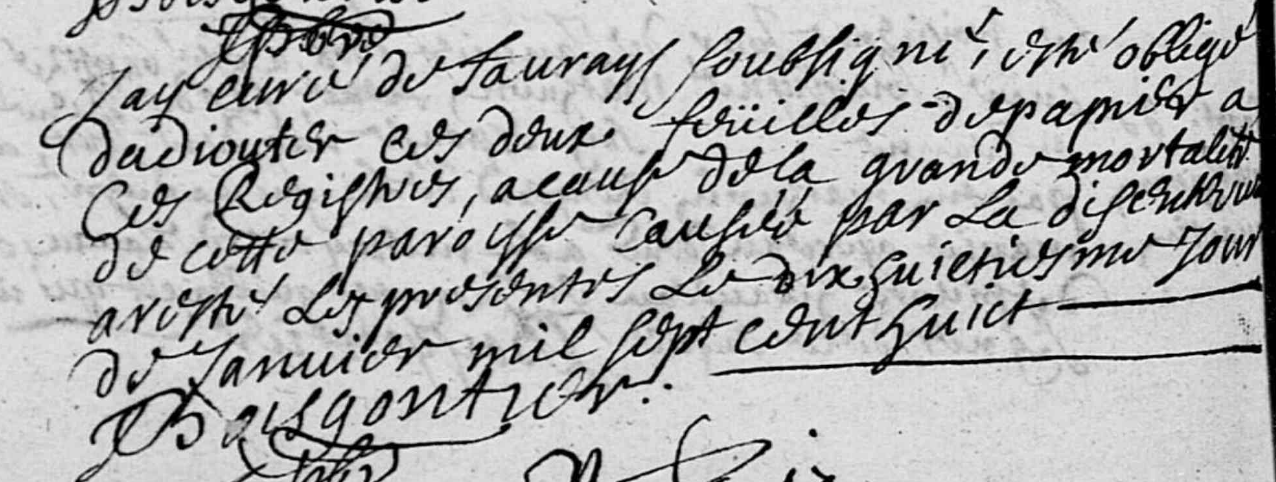 Jay curé de Saurays soubsigné, esté obligé
dadiouter ces deux feüilles de papier a
Ces Registres, a cause de la grande mortalité
de cette paroisse causée par La disenterie
aresté Les presentes Le dix huictiesme Jour
de Januier mil sept cent huict
Boisgontier.